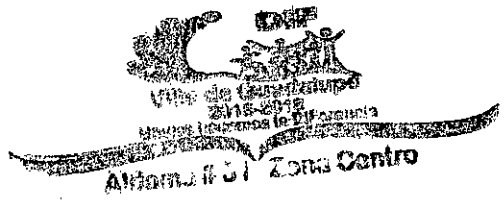 DIF
Villa de Guadalupe
2015-2018
Juntos Hacemos la Diferencia
Aldama # 51 Zona Centro